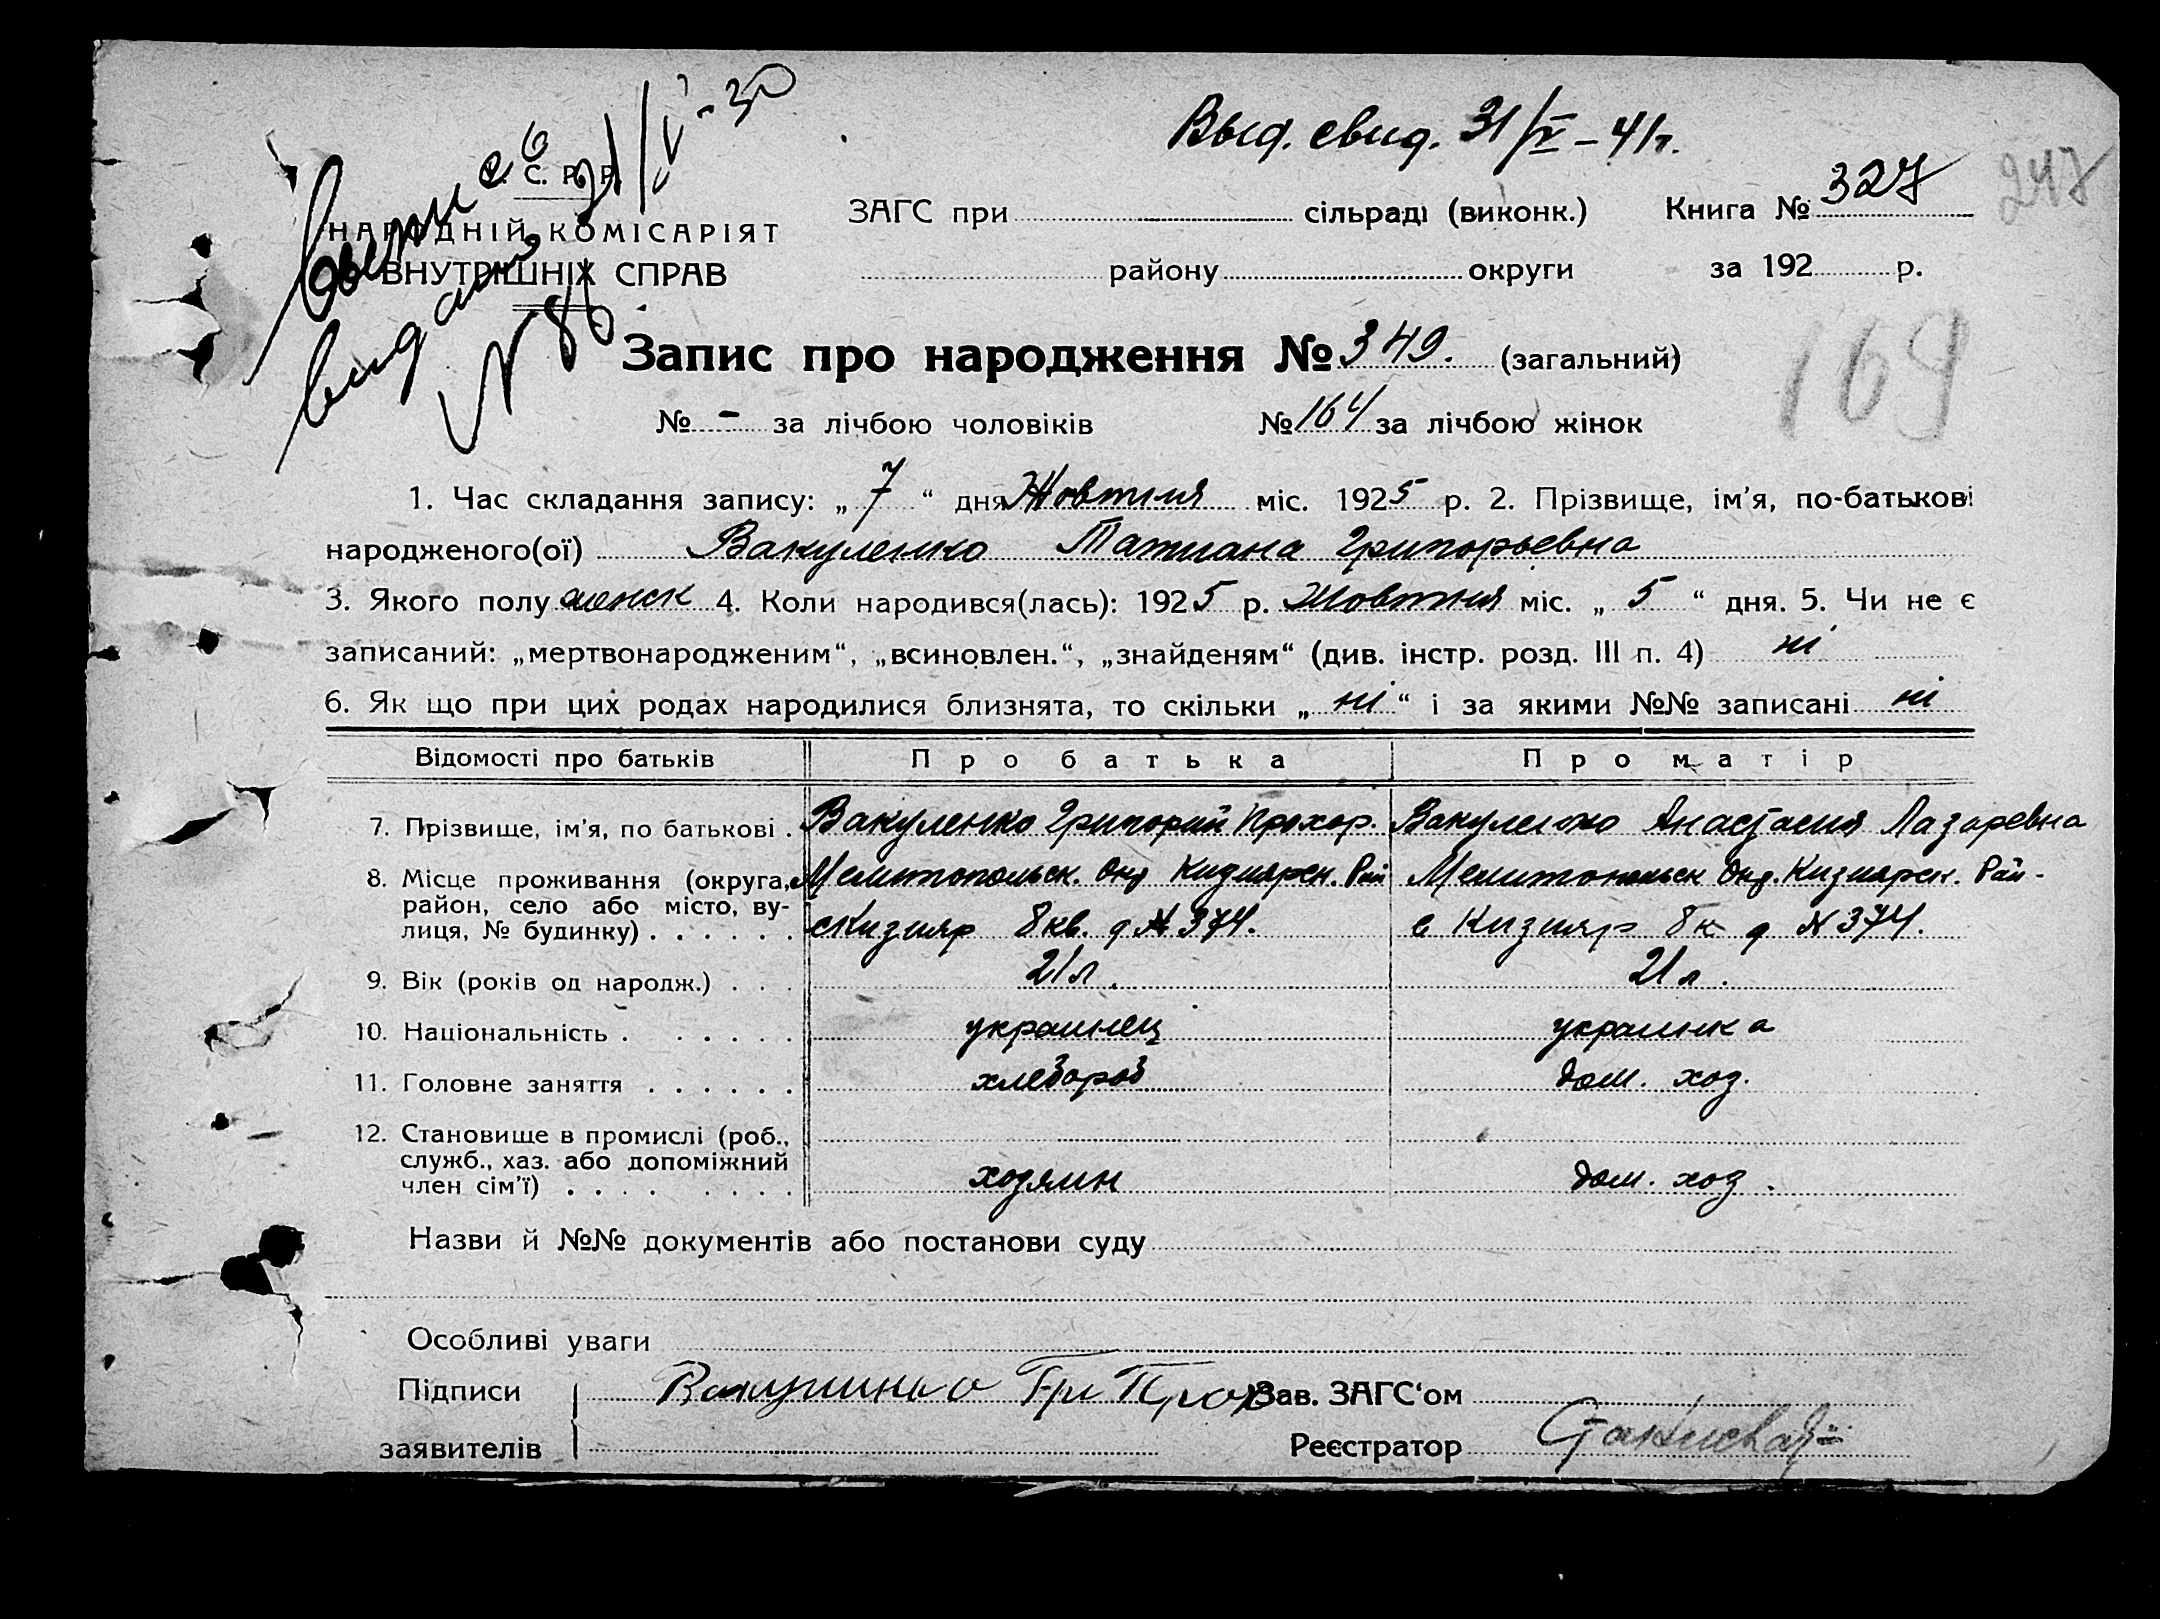 Выд. свид. 31/V – 41 г.
У. С. Р. Р.
НАРОДНІЙ КОМІСАРІЯТ
ВНУТРІШНІХ СПРАВ
видано
№ 86
ЗАГС при сільраді (виконк.) Книга № 327
247
району округи за 192 р.
Запис про народження № 349. (загальний)
169
№ – за лічбою чоловіків № 164 за лічбою жінок
1. Час складання запису: „ 7 “ дня Жовтня міс. 1925 р. 2. Прізвище, ім'я, по-батькові
народженого(ої) Вакуленко Татиана Григорьевна
3. Якого полу женск 4. Коли народився(лась): 1925 р. Жовтня міс. „ 5 “ дня. 5. Чи не є
записаний: „мертвонародженим“, „всиновлен.“, „знайденям“ (див. інстр. розд. III п. 4) ні
6. Як що при цих родах народилися близнята, то скільки „ ні “ і за якими №№ записані ні
Відомості про батьків Про батька Про матір
7. Прізвище, ім'я, по батькові . Вакуленко Григорий Прохор. Вакуленко Анастасия Лазаревна
8. Місце проживання (округа, Мелитопольск. Окр Кизиярск. Рай Мелитопольск Окр. Кизиярск. Рай-
район, село або місто, ву-
лиця, № будинку) . . . . . . с Кизияр 8 кв. д № 374. с Кизияр 8 к д № 374.
9. Вік (років од народж.) . . . 21 л. 21 л.
10. Національність . . . . . . украинец украинка
11. Головне заняття . . . . . . хлебороб дом. хоз.
12. Становище в промислі (роб.,
служб., хаз. або допоміжний
член сім'ї) . . . . . . . . хозяин дом. хоз.
Назви й №№ документів або постанови суду
Особливі уваги
Підписи Вакуленко Гри Прох Зав. ЗАГС'ом
заявителів Реєстратор